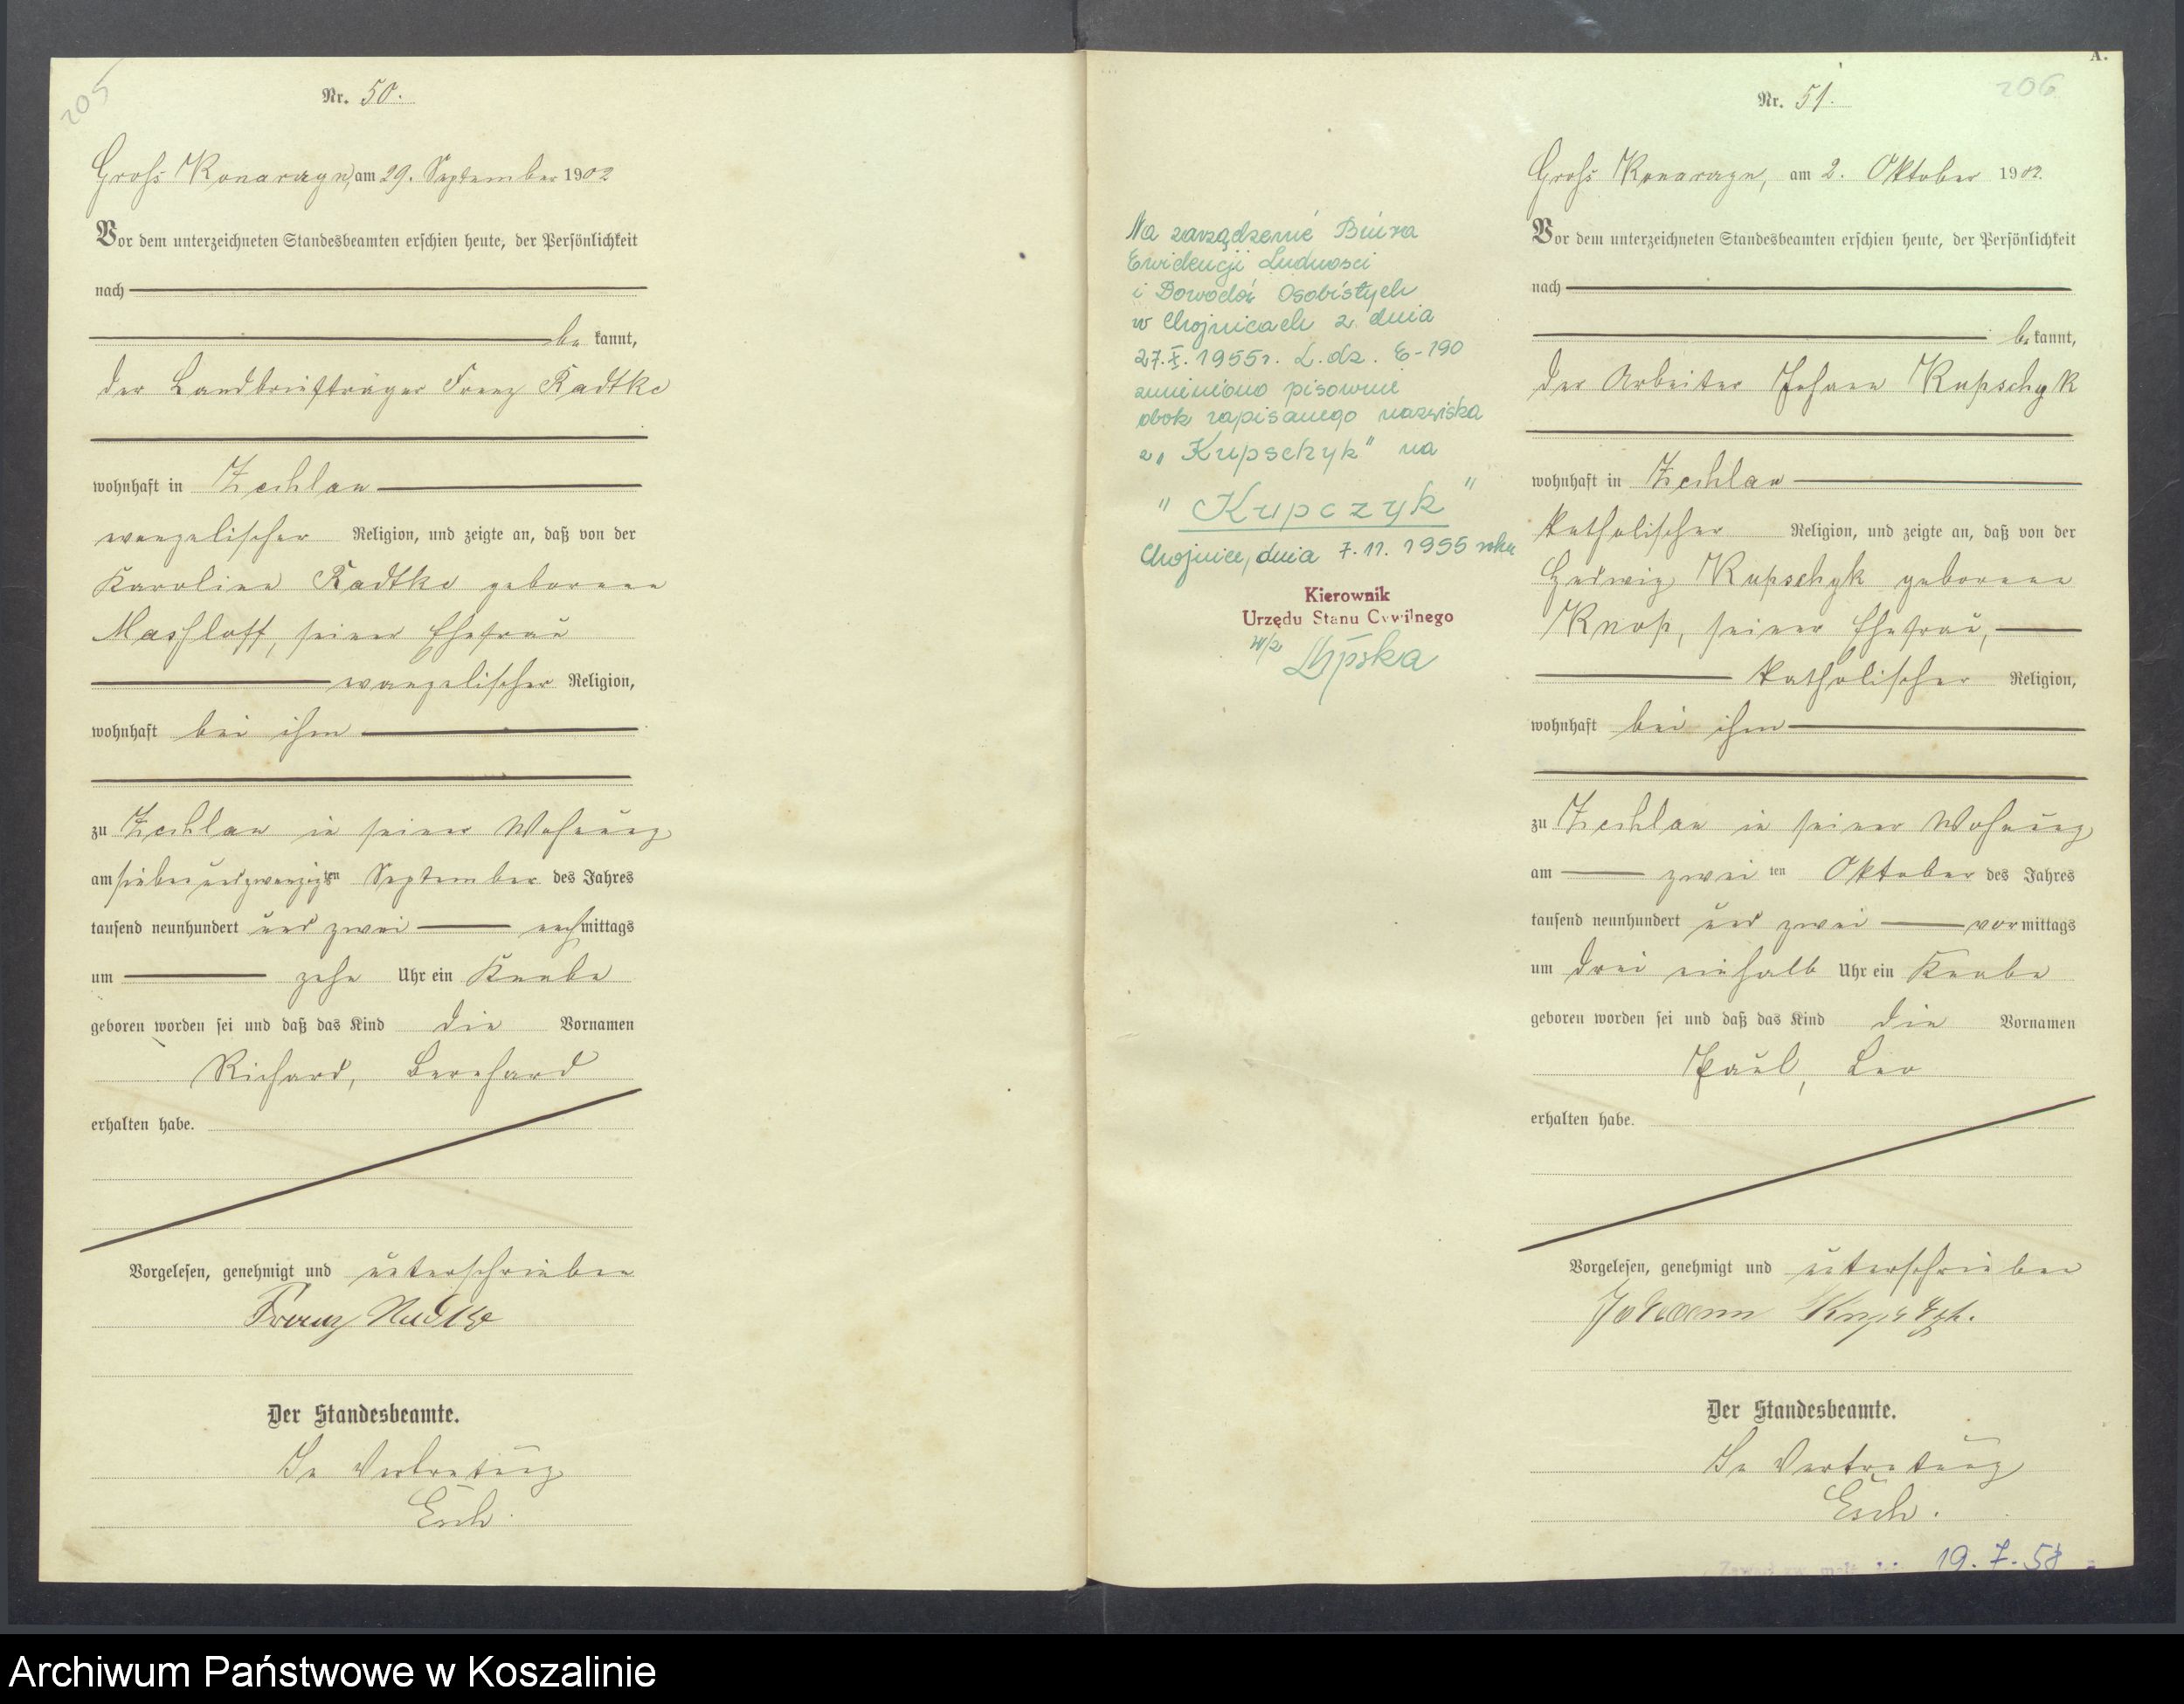 205
Nr. 50.
Groß Konarzyn, am 29. September 1902
Vor dem unterzeichneten Standesbeamten erschien heute, der Persönlichkeit
nach
be kannt,
der Landbriefträger Franz Radtke
wohnhaft in Zechlau
evangelischer Religion, und zeigte an, daß von der
Karoline Radtke geborene
Maßloff, seiner Ehefrau
evangelischer Religion,
wohnhaft bei ihm
zu Zechlau in seiner Wohnung
am sieben und zwanzigsten September des Jahres
tausend neunhundert und zwei nachmittags
um zehn Uhr ein Knabe
geboren worden sei und daß das Kind die Vornamen
Richard, Bernhard
erhalten habe.
Vorgelesen, genehmigt und unterschrieben
Franz Radtke
Der Standesbeamte.
In Vertretung
Esch.
Na zarządzenie Biura
Ewidencji Ludności
i Dowodów Osobistych
w Chojnicach z dnia
27.X.1955r. L.dz. E-190
zmieniono pisownię
obok zapisanego nazwiska
z „Kupschyk" na
"Kupczyk"
Chojnice, dnia 7.11.1955 roku
Kierownik
Urzędu Stanu Cywilnego
w/z Lipska
A.
206
Nr. 51.
Groß Konarzyn, am 2. Oktober 1902.
Vor dem unterzeichneten Standesbeamten erschien heute, der Persönlichkeit
nach
be kannt,
der Arbeiter Johann Kupschyk
wohnhaft in Zechlau
katholischer Religion, und zeigte an, daß von der
Hedwig Kupschyk geborene
Knop, seiner Ehefrau,
katholischer Religion,
wohnhaft bei ihm
zu Zechlau in seiner Wohnung
am zweiten Oktober des Jahres
tausend neunhundert und zwei vormittags
um drei einhalb Uhr ein Knabe
geboren worden sei und daß das Kind die Vornamen
Paul, Leo
erhalten habe.
Vorgelesen, genehmigt und unterschrieben
Johann
Der Standesbeamte.
In Vertretung
Esch.
19.7.58
Archiwum Państwowe w Koszalinie